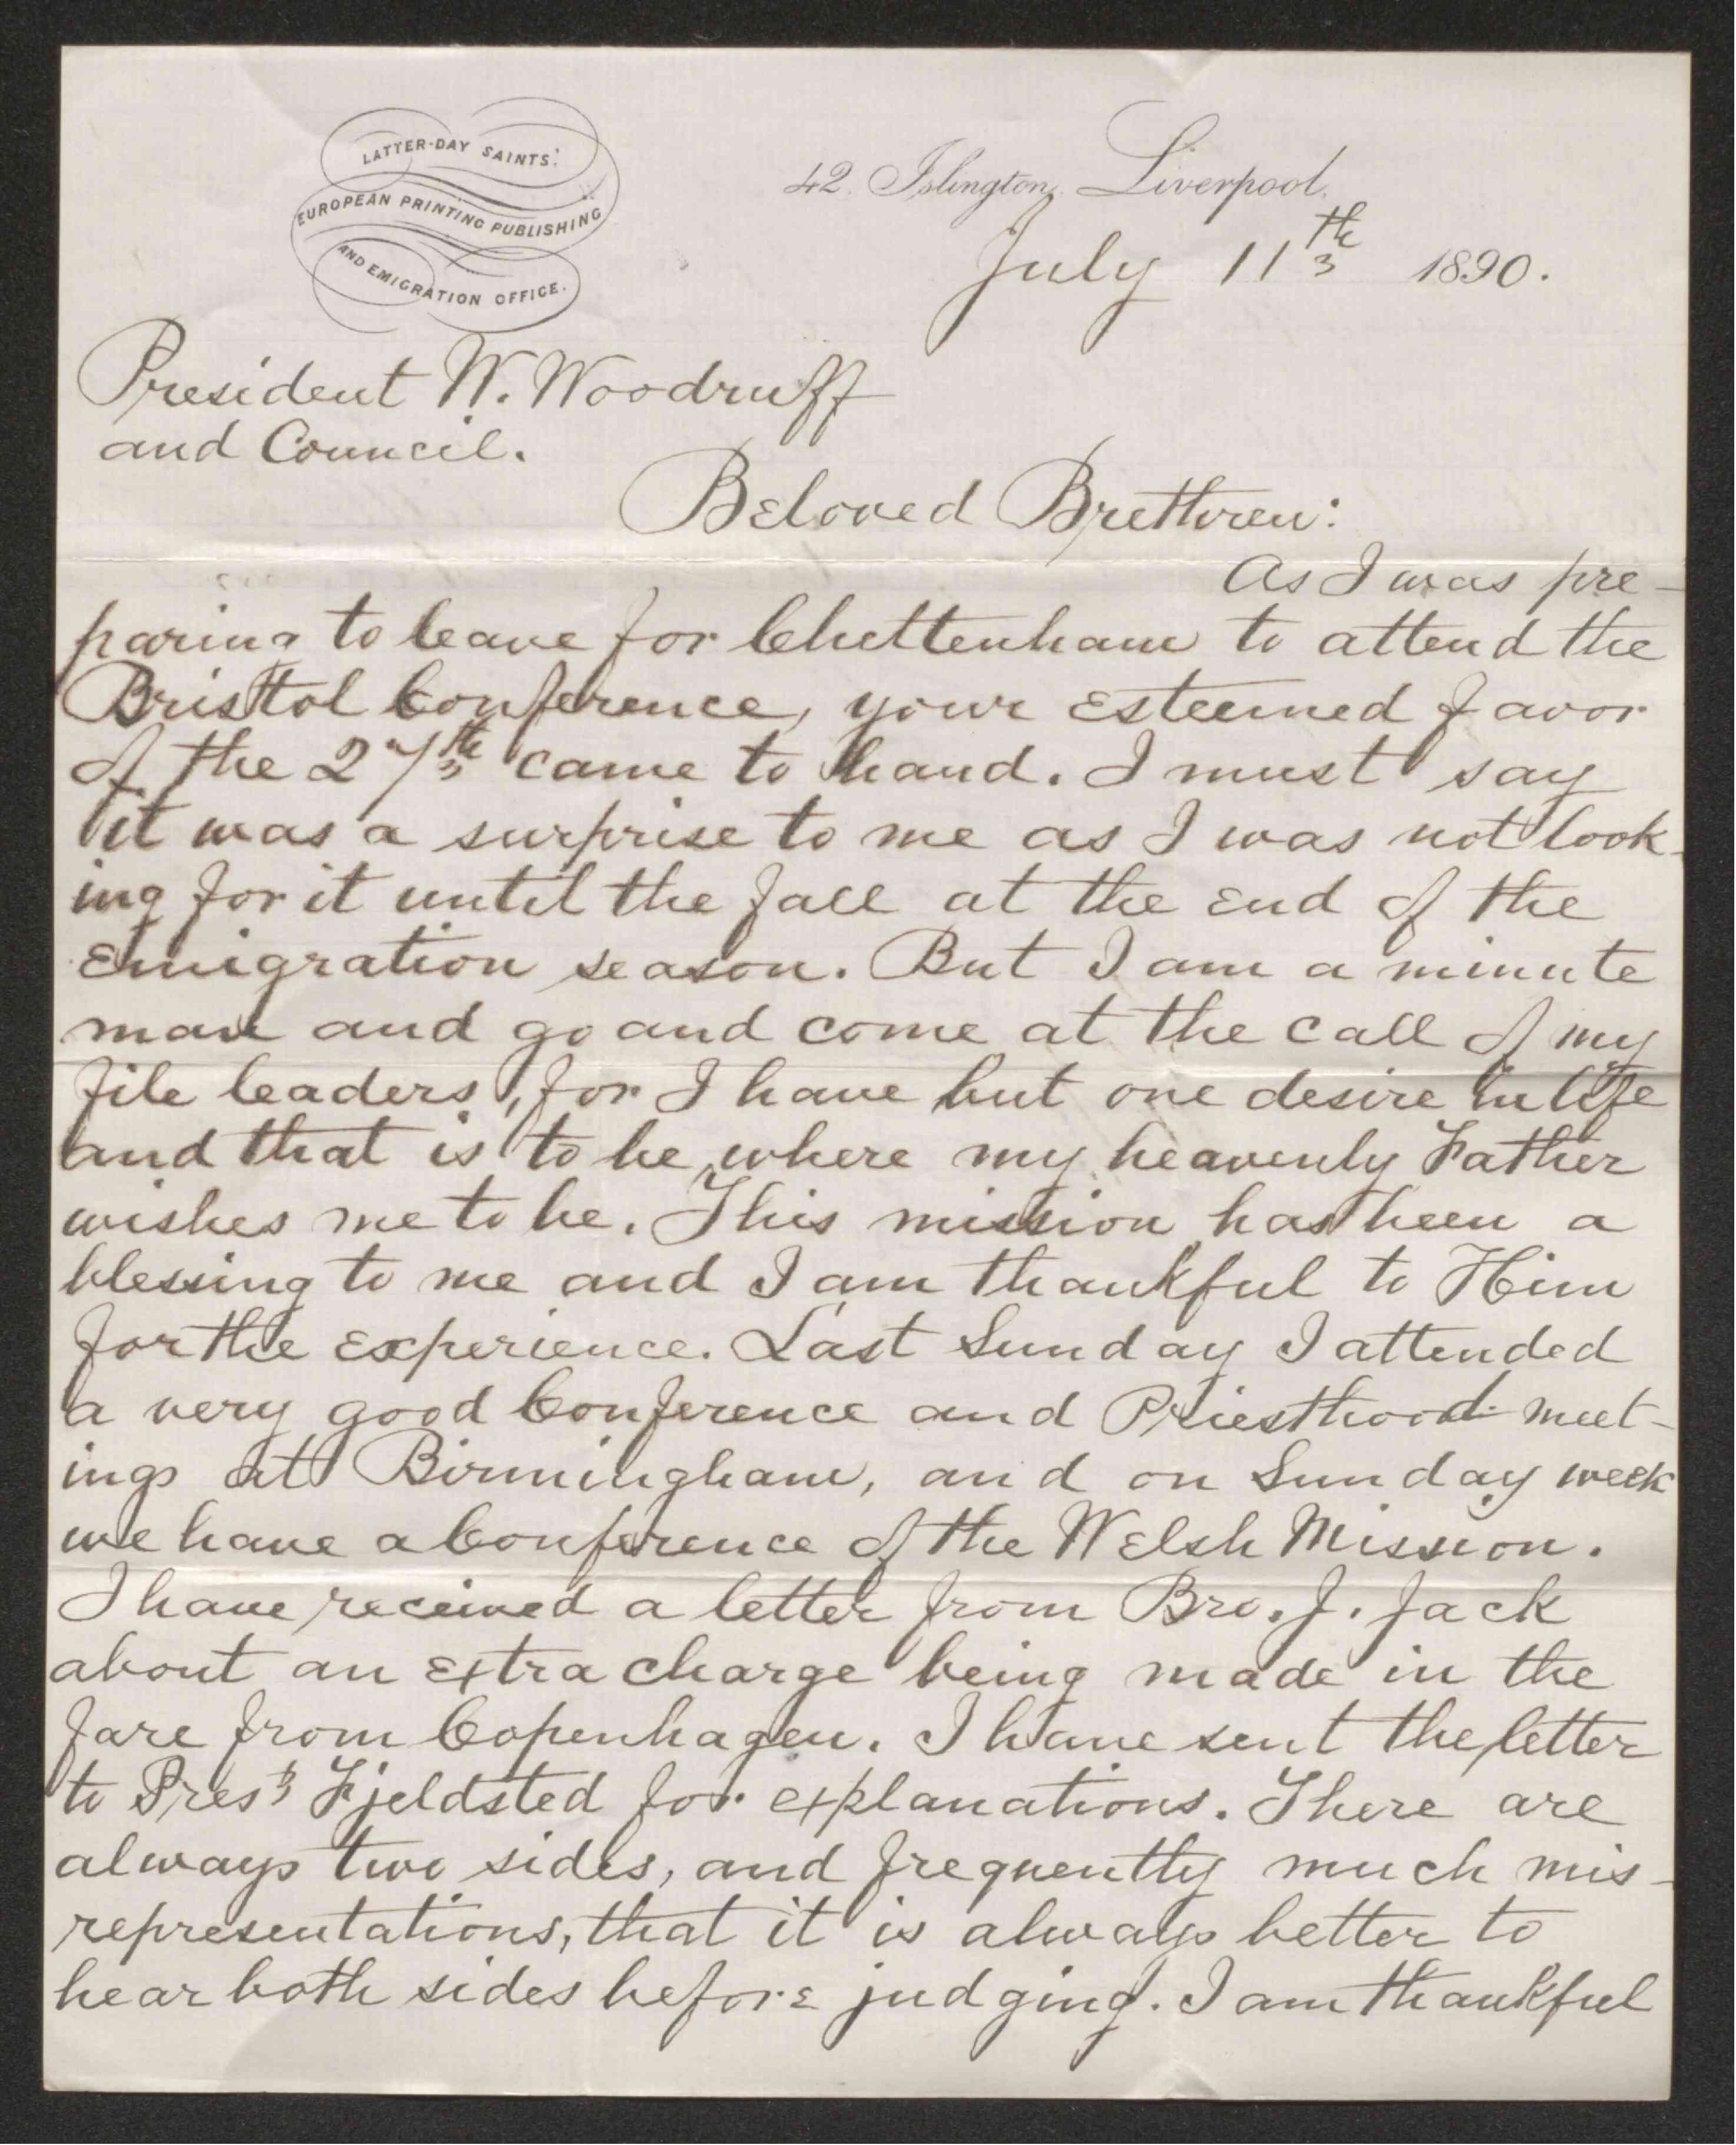 LATTER-DAY SAINTS'
EUROPEAN PRINTING PUBLISHING
AND EMIGRATION OFFICE.
42. Islington, Liverpool.
July 11th 1890.
President W. Woodruff
and Council.
Beloved Brethren:
As I was pre-
paring to leave for Cheltenham to attend the
Bristol Conference, your esteemed favor
of the 27th came to hand. I must say
it was a surprise to me as I was not look-
ing for it until the fall at the end of the
Emigration season. But I am a minute
man and go and come at the call of my
file leaders, for I have but one desire in life
and that is to be where my heavenly Father
wishes me to be. This mission has been a
blessing to me and I am thankful to Him
for the experience. Last Sunday I attended
a very good Conference and Priesthood meet-
ings at Birmingham, and on Sunday week
we have a Conference of the Welsh Mission.
I have received a letter from Bro. J. Jack
about an extra charge being made in the
fare from Copenhagen. I have sent the letter
to Prest Fjeldsted for explanations. There are
always two sides, and frequently much mis-
representations, that it is always better to
hear both sides before judging. I am thankful